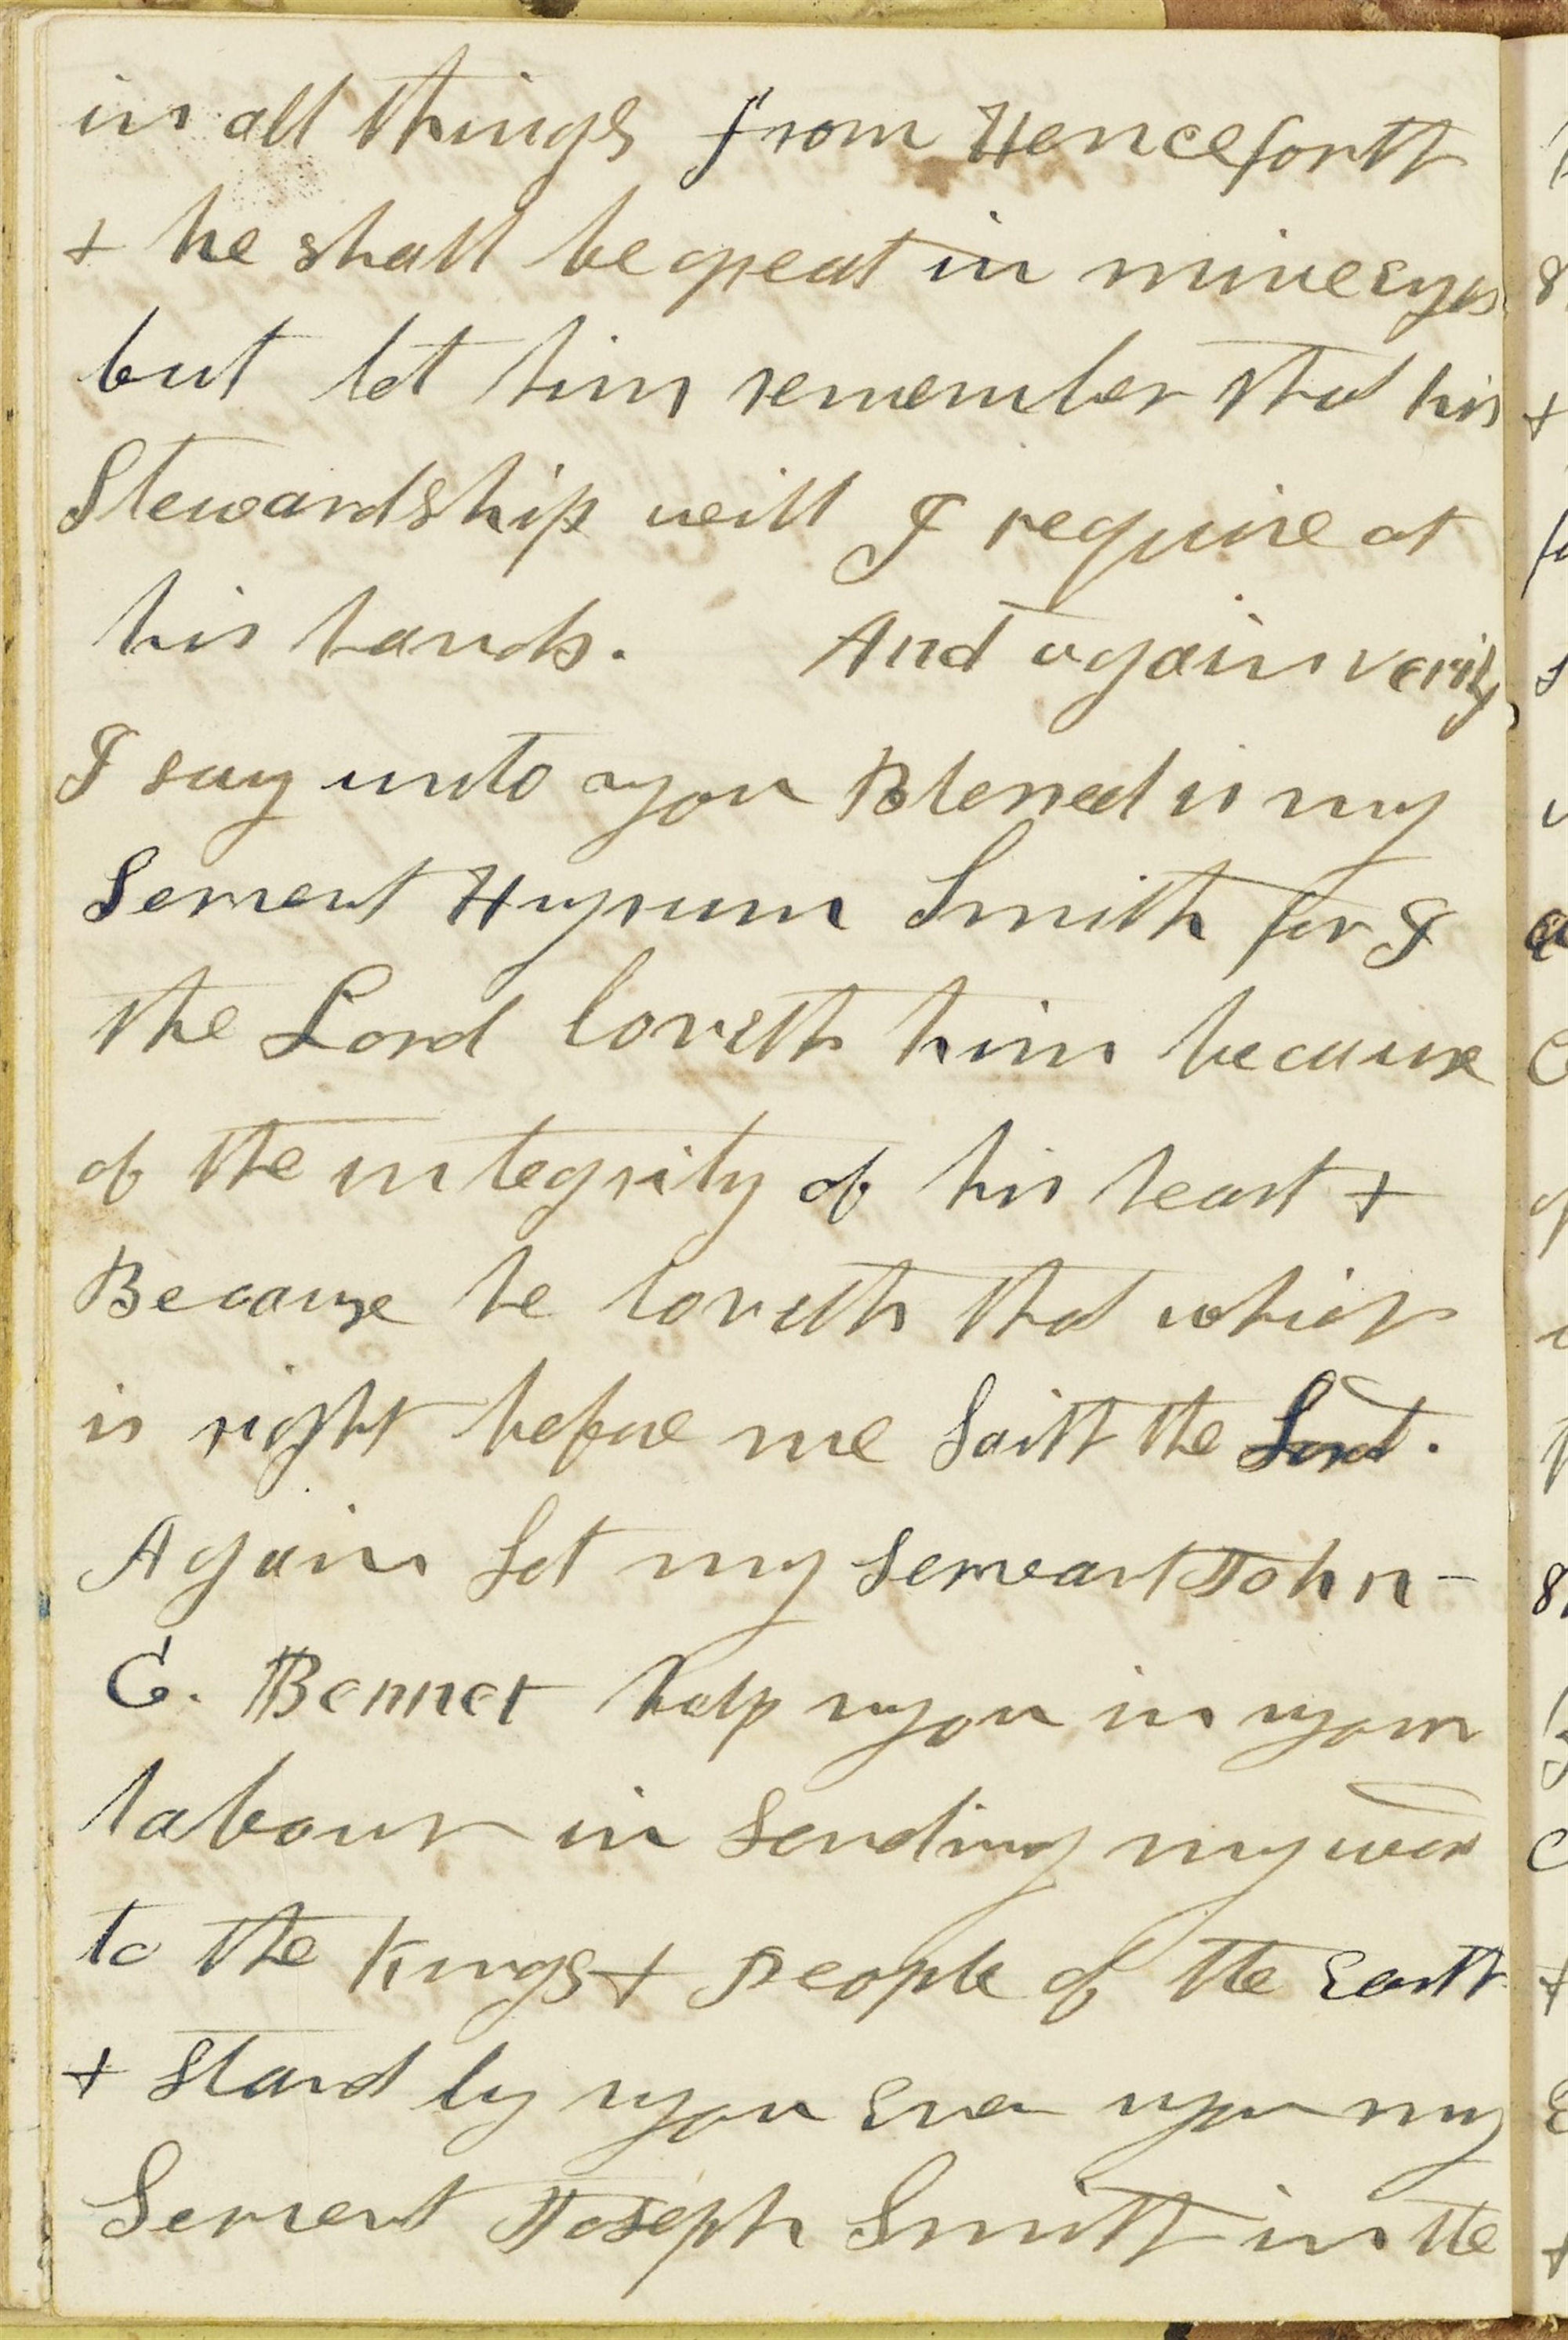 in all things from Henceforth
+ he shall be great in mine eyes
but let him remember that his
Stewardship will I require at
his hands. And again verily,
I say unto you Blessed is my
Servent Hyrum Smith for I
the Lord loveth him because
of the integrity of his heart +
Because he loveth that which
is right before me Saith the Lord.
Again Let my Serveant John-
C. Bennet help you in your
labour in Sending my word
to the Kings + people of the Earth
+ stand by you Even you my
Servent Joseph Smith in the